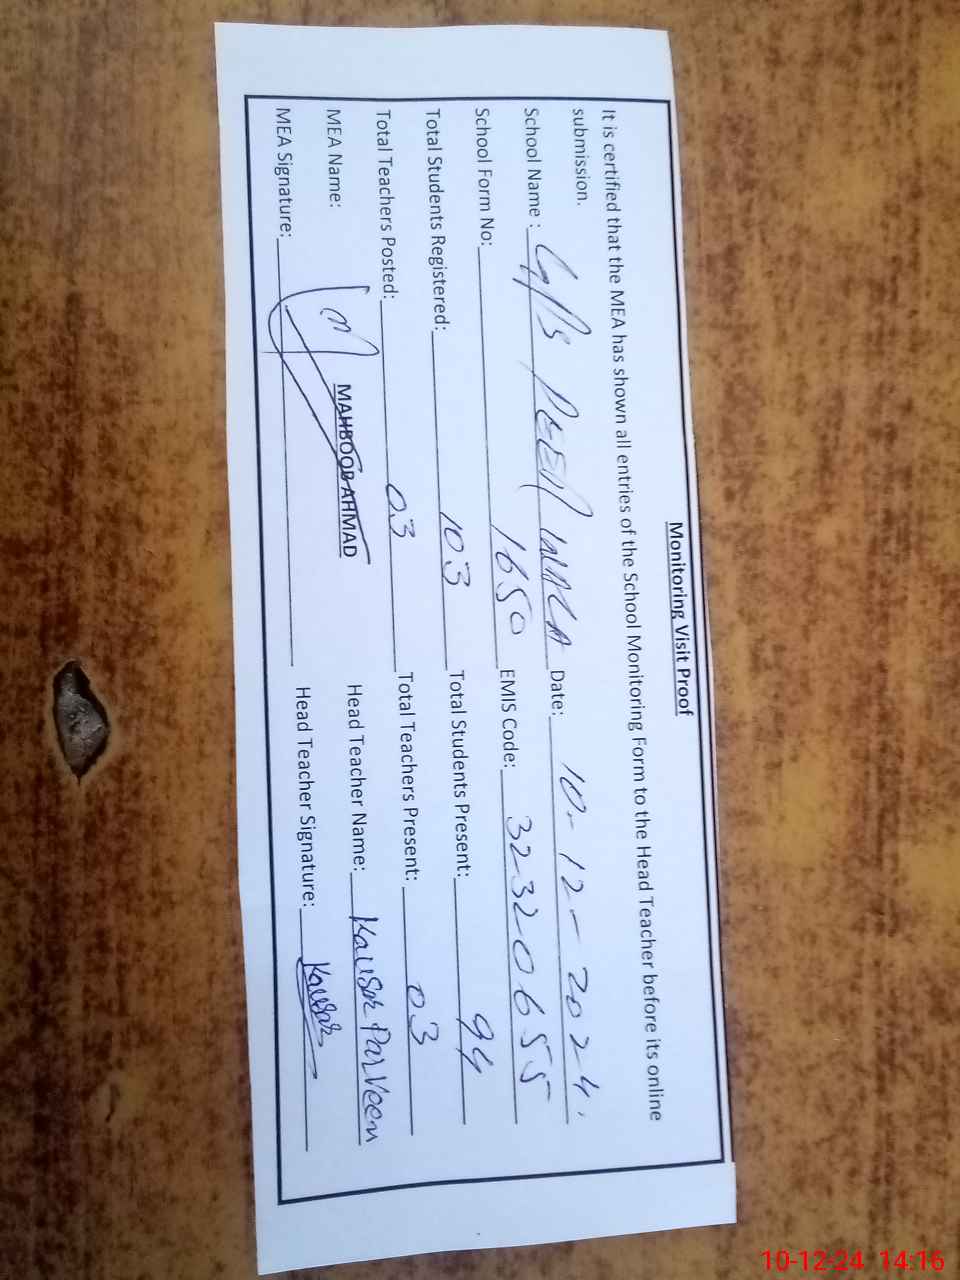 Monitoring Visit Proof
It is certified that the MEA has shown all entries of the School Monitoring Form to the Head Teacher before its online
submission.
School Name : G/PS PEER WALA Date: 10-12-2024
School Form No: 1650 EMIS Code: 32320655
Total Students Registered: 103 Total Students Present: 94
Total Teachers Posted: 03 Total Teachers Present: 03
MEA Name: MAHBOOB AHMAD Head Teacher Name: Kausar Parveen
MEA Signature: Head Teacher Signature: Kausar
10-12-24 14:16